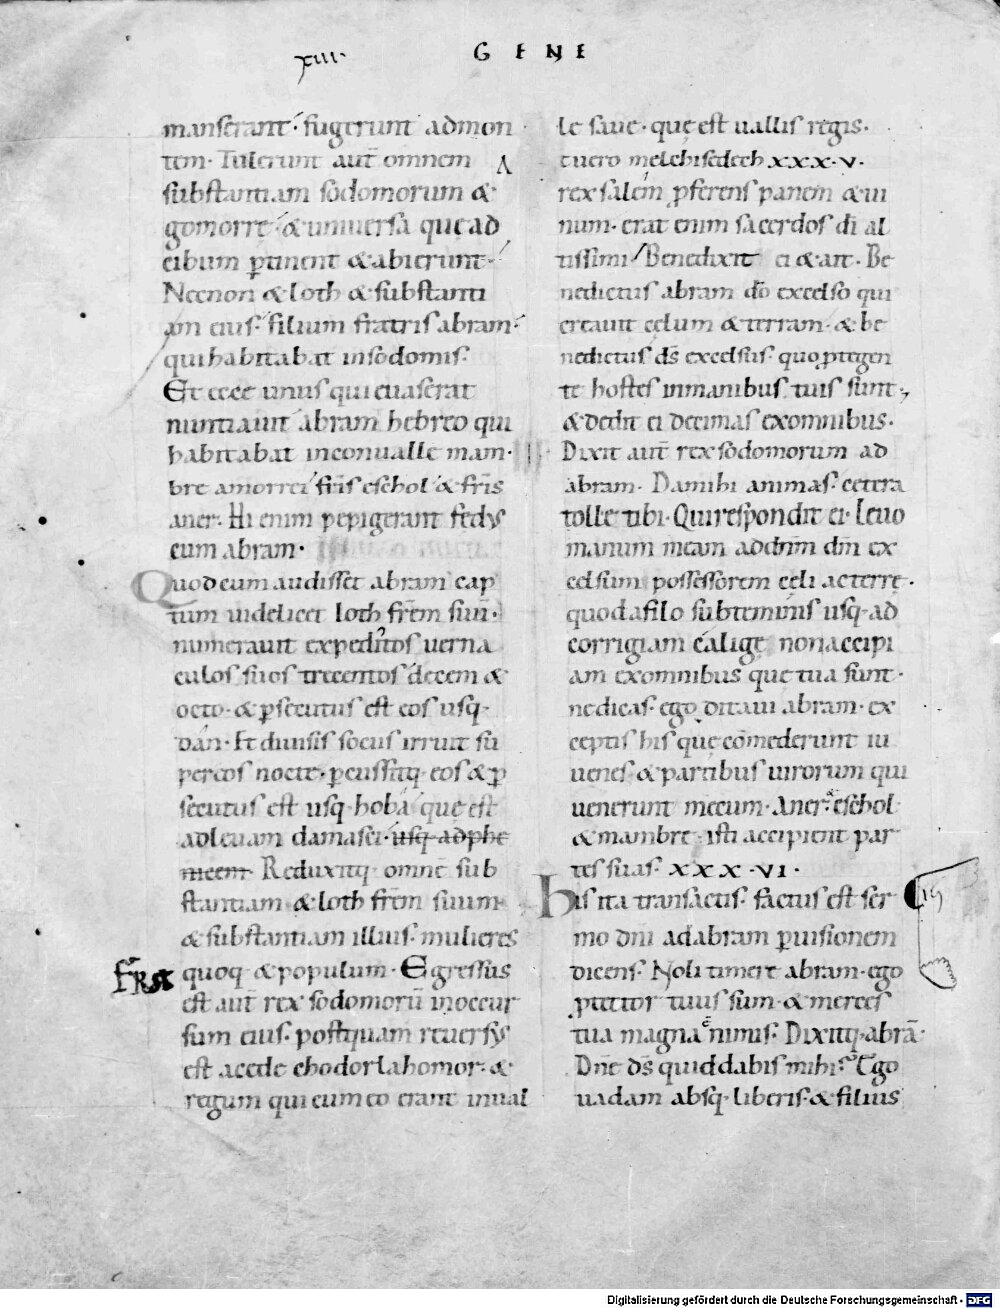 xiii·
GENE
manserant· fugerunt admon
tem· Tulerunt aut̄ omnem
substantiam sodomorum &
gomorrę· & uniuersa quę ad
cibum ꝑtinent & abierunt·
Necnon & loth & substanti
am eius· filium fratris abram·
qui habitabat insodomis·
Et ecce unus qui euaserat
nuntiauit abram hebreo qui
habitabat inconualle mam·
bre amorrei fr̄is eschol & fr̄is
aner· Hi enim pepigerant fędus
cum abram·
Quod cum audisset abram cap
tum uidelicet loth fr̄em suū·
numerauit expeditos uerna
culos suos trecentos decem &
octo· & ꝑsecutus est eos usq·
dan· Et diuisis sociis irruit su
per eos nocte· ꝑcussitq· eos & ꝑ
secutus est usq· hoba quę est
adleuam damasci· usq· adphe
nicem· Reduxitq· omnē sub
stantiam· & loth fr̄em suum·
& substantiam illius· mulieres
quoq· & populum· Egressus
est aut̄ rex sodomorū inoccur
sum eius· postquam reuersus
est acede chodorlahomor· &
regum qui cum eo erant inual
le saue· quę est uallis regis·
tuero melchisedech xxx·v·
rex salem ꝓferens panem & ui
num· erat enim sacerdos dī al
tissimi· Benedixit ei & ait· Be
nedictus abram dō excelso qui
creauit celum & terram· & be
nedictus dś excelsus· quo ꝓtegen
te hostes inmanibus tuis sunt·
& dedit ei decimas exomnibus·
Dixit aut̄ rex sodomorum ad
abram· Da mihi animas· cetera
tolle tibi· Qui respondit ei· Leuo
manum meam addnm̄ dm̄ ex
celsum possessorem cęli ac terrę·
quod afilo subteminis usq· ad
corrigiam caligę non accipi
am exomnibus quę tua sunt·
ne dicas· ego ditaui abram· ex
ceptis his quę cōmederunt iu
uenes· & partibus uirorum qui
uenerunt mecum· Aner· eschol
& mambre· isti accipient par
tes suas· xxx·vi·
His ita transactis· factus est ser
mo dn̄i adabram ꝑuisionem
dicens· Noli timere abram· ego
ꝓtector tuus sum· & merces
tua magna nimis· Dixitq· abrā·
Dn̄e dś quid dabis mihi? Ego
uadam absq· liberis· & filius